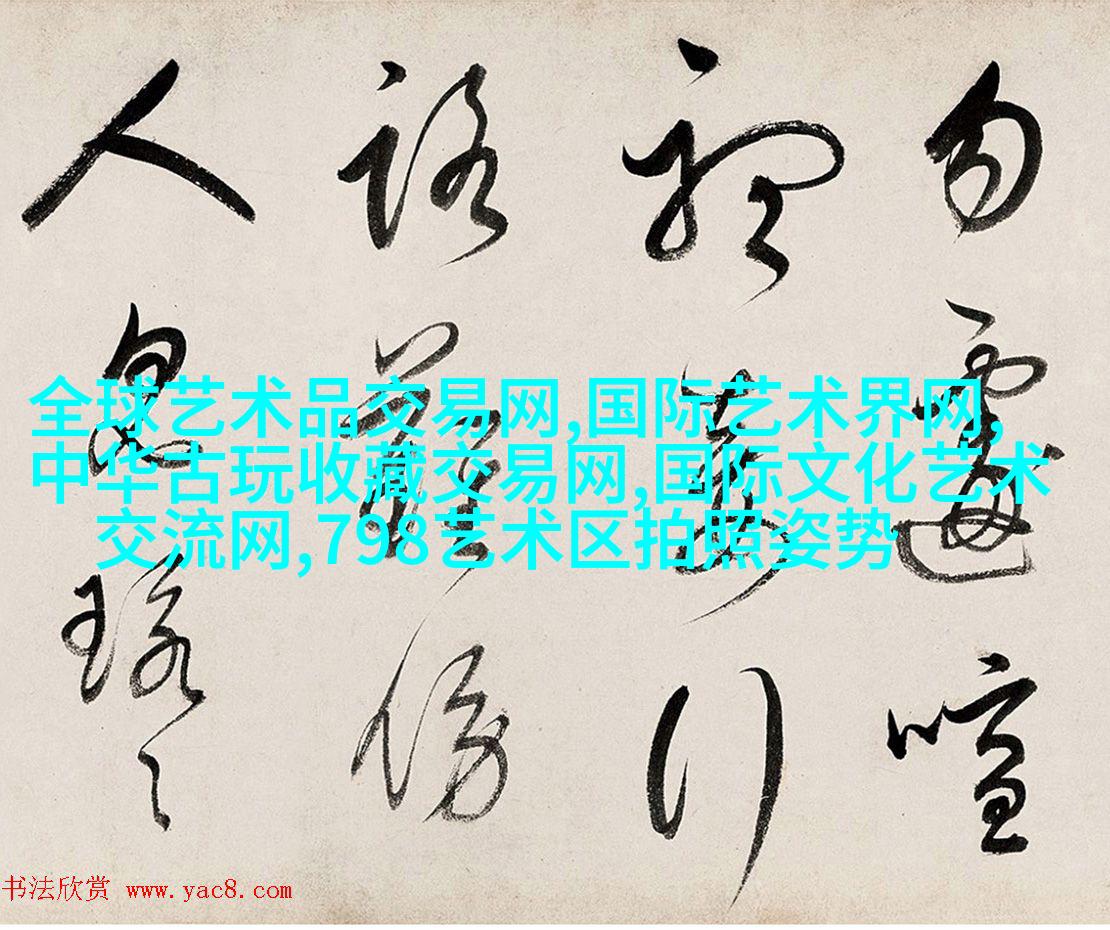 全球艺术品交易网,国际艺术界网,
中华古玩收藏交易网,国际文化艺术
交流网,798艺术区拍照姿势
勿遽喧
行
路難傍
人
书法欣赏 www.yac8.com